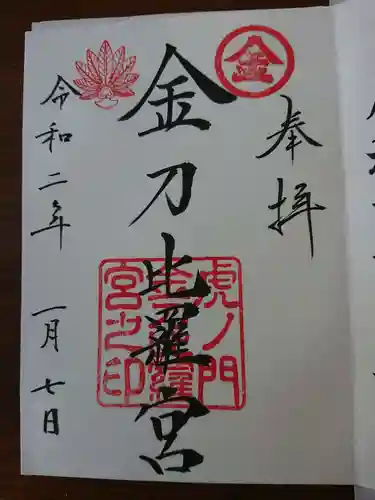 奉拝
金
金刀比羅宮
虎ノ門
金刀比羅
宮之印
令和二年 一月七日